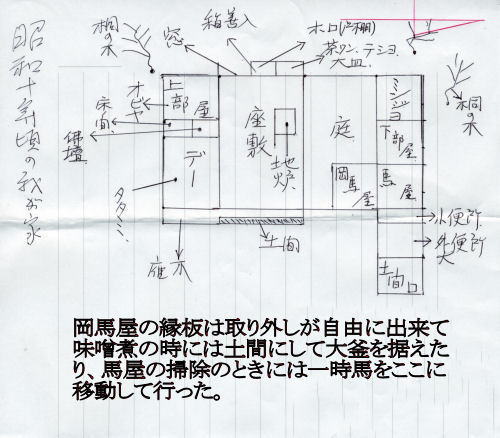 昭和十年頃の我が家
桐の木
窓
箱善入
木口(戸棚)
茶ワン、テショ
大皿
桐の木
オビヤ
床間
佛壇
上部屋
デー
タタミ
座敷
地炉
庭
岡馬屋
ミンジョ
下部屋
馬屋
小便所
外便所
大
土間口
土間
雁木
岡馬屋の縁板は取り外しが自由に出来て
味噌煮の時には土間にして大釜を据えた
り、馬屋の掃除のときには一時馬をここに
移動して行った。